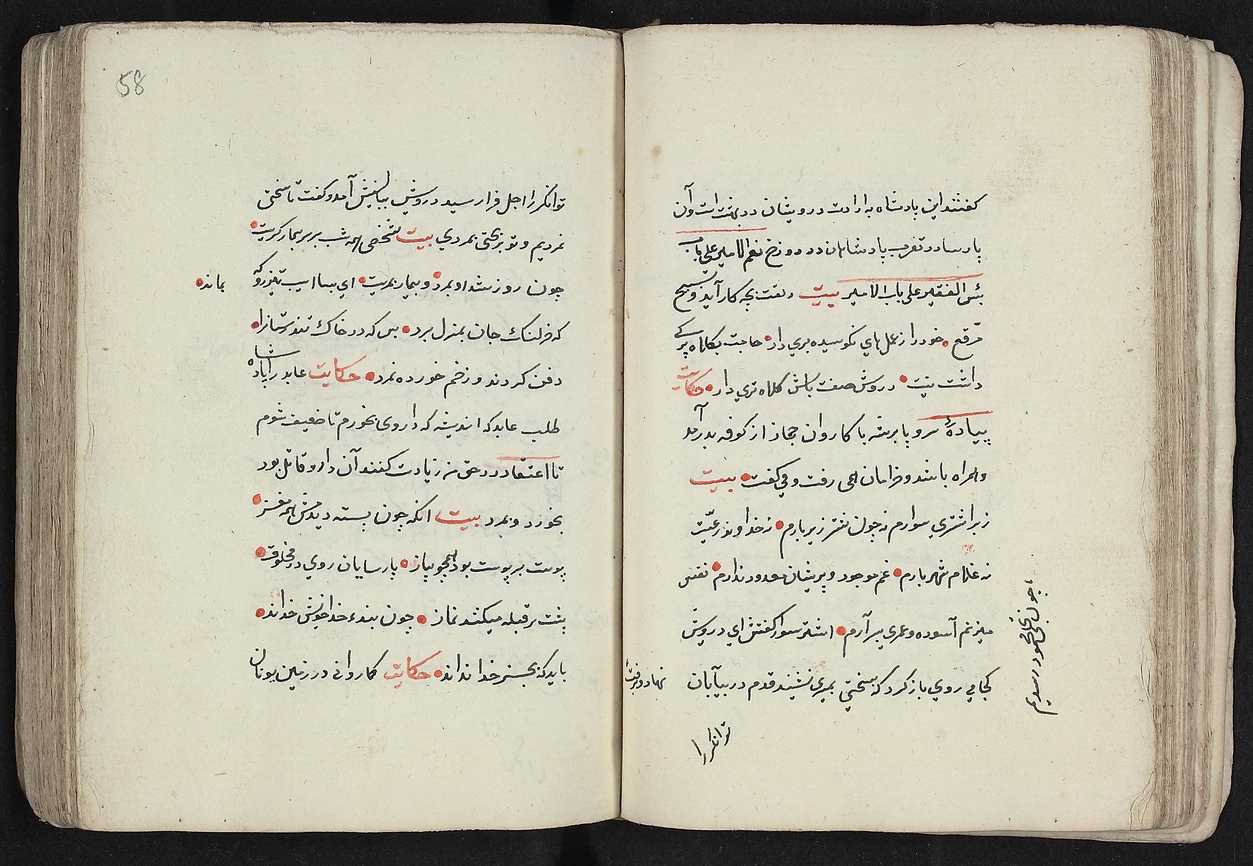 گفتند این پادشاه به ارادت درویشان در بهشت است و آن
پارسا در تقرب پادشاهان در دوزخ نعم الامیر علی باب
بئس الفقیر علی باب الامیر بیت دلقت بچه کار آید و تسبیح
مرقع خود را از عمل های نکوهیده بری دار حاجت بکلاه برکی
داشتنت نیست درویش صفت باش کلاه تتری دار حکایت
پیادهٔ سر و پا برهنه با کاروان حجاز از کوفه بدر آمد
و همراه ما شد و خرامان همی رفت و می گفت بیت
نه بر اشتری سوارم نه چون شتر زیر بارم نه خداوند رعیت
نه غلام شهریارم غم موجود و پریشانی معدوم ندارم نفسی
میزنم آسوده و عمری بسر آرم اشتر سواری گفتش ای درویش
کجا می روی باز گرد که بسختی بمیری نشنید قدم در بیابان
نهاد و برفت
چون بنخلهٔ محمود رسیدیم
توانگر را
58
توانگر را اجل فرا رسید درویش ببالینش آمد و گفت ما بسختی
نمردیم و تو بر بختی بمردی بیت شخصی همه شب بر سر بیمار گریست
چون روز شد او بمرد و بیمار بزیست ای بسا اسب تیز رو که
بماند
که خر لنگ جان بمنزل برد بس که در خاک تندرستان را
دفن کردند و زخم خورده نمرد حکایت عابد را پادشاه
طلب عابد که اندیشه که داروی بخورم تا ضعیف شوم
تا اعتقاد در حق من زیادت کنند آن دارو قاتل بود
بخورد و بمرد بیت انکه چون پسته دیدمش همه مغز
پوست بر پوست بود همچو پیاز پارسایان روی در مخلوق
پشت بر قبله میکنند نماز چون بنده خدا خویش خواند
باید که بجز خدا نداند حکایت کاروانی در زمین یونان